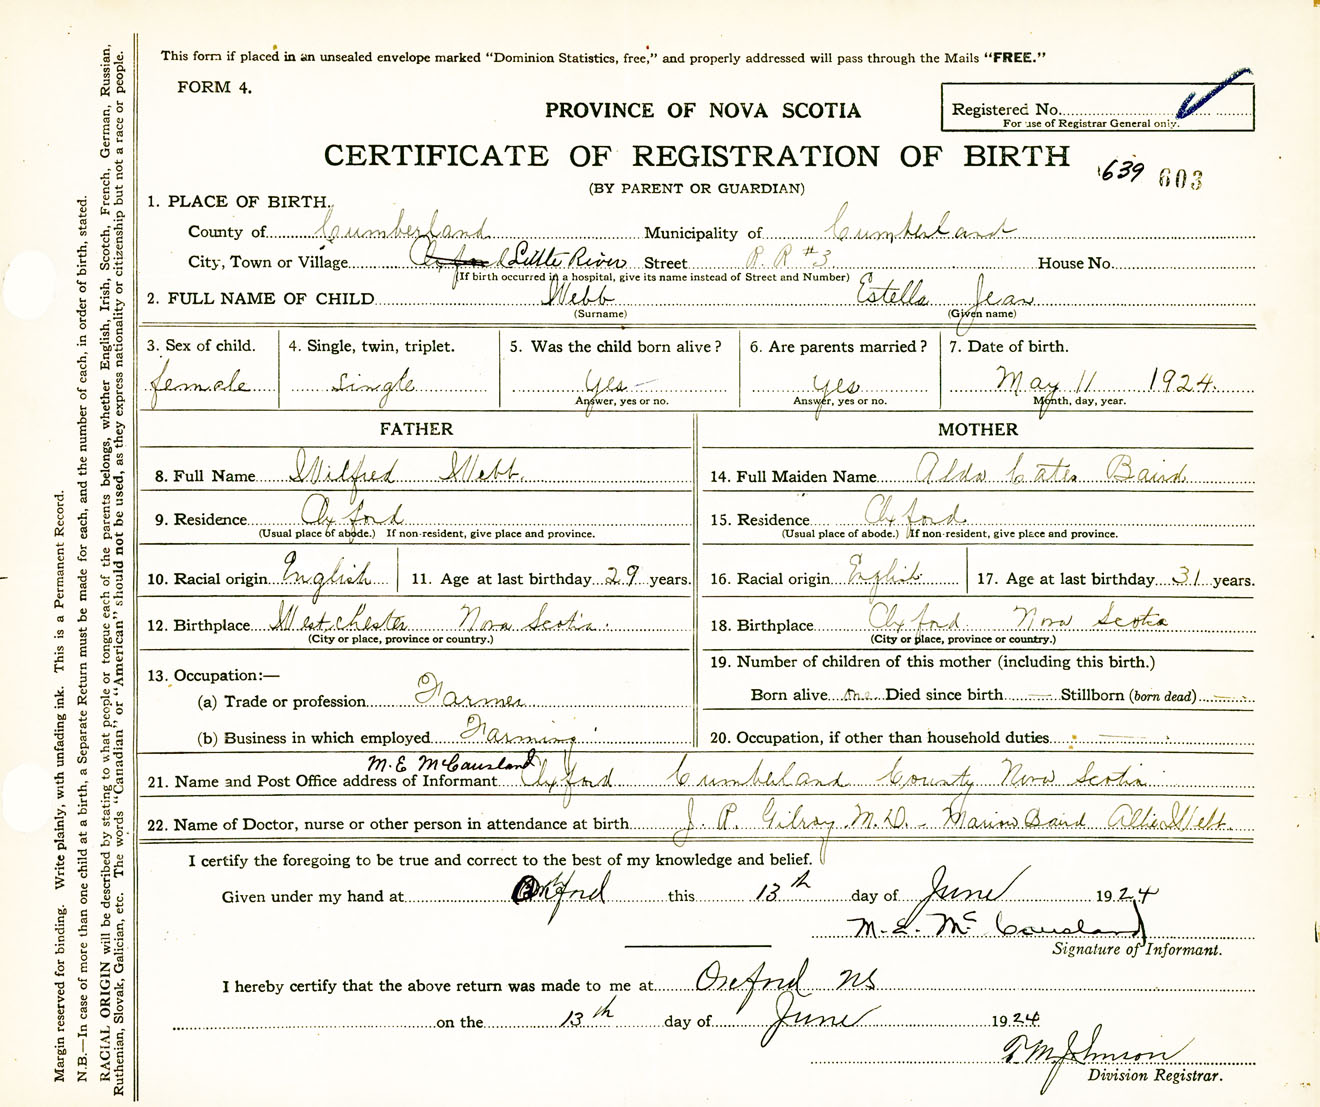 This form if placed in an unsealed envelope marked "Dominion Statistics, free," and properly addressed will pass through the Mails "FREE."
FORM 4.
PROVINCE OF NOVA SCOTIA
Registered No.
For use of Registrar General only.
CERTIFICATE OF REGISTRATION OF BIRTH
639 603
(BY PARENT OR GUARDIAN)
1. PLACE OF BIRTH.
County of Cumberland Municipality of Cumberland
City, Town or Village Oxford Little River Street R. R #3 House No.
(If birth occurred in a hospital, give its name instead of Street and Number)
2. FULL NAME OF CHILD Webb Estella Jean
(Surname) (Given name)
3. Sex of child. 4. Single, twin, triplet. 5. Was the child born alive? 6. Are parents married? 7. Date of birth.
female Single Yes Yes May 11 1924
Answer, yes or no. Answer, yes or no. Month, day, year.
FATHER MOTHER
8. Full Name Wilfred Webb. 14. Full Maiden Name Alda Cates Baird
9. Residence Oxford 15. Residence Oxford
(Usual place of abode.) If non-resident, give place and province. (Usual place of abode.) If non-resident, give place and province.
10. Racial origin English 11. Age at last birthday 29 years. 16. Racial origin English 17. Age at last birthday 31 years.
12. Birthplace Westchester Nova Scotia. 18. Birthplace Oxford Nova Scotia
(City or place, province or country.) (City or place, province or country.)
13. Occupation:— 19. Number of children of this mother (including this birth.)
(a) Trade or profession Farmer Born alive one Died since birth — Stillborn (born dead) —
(b) Business in which employed Farming 20. Occupation, if other than household duties —
M. E McCausland
21. Name and Post Office address of Informant Oxford Cumberland County Nova Scotia
22. Name of Doctor, nurse or other person in attendance at birth J. R. Gilroy M.D. - Marion Baird Allie Webb.
I certify the foregoing to be true and correct to the best of my knowledge and belief.
Given under my hand at Oxford this 13th day of June 1924
M. E. McCausland
Signature of Informant.
I hereby certify that the above return was made to me at Oxford NS
on the 13th day of June 1924
T M Johnson
Division Registrar.
Margin reserved for binding. Write plainly, with unfading ink. This is a Permanent Record.
N.B.—In case of more than one child at a birth, a Separate Return must be made for each, and the number of each, in order of birth, stated.
RACIAL ORIGIN will be described by stating to what people or tongue each of the parents belongs, whether English, Irish, Scotch, French, German, Russian,
Ruthenian, Slovak, Galician, etc. The words "Canadian" or "American" should not be used, as they express nationality or citizenship but not a race or people.